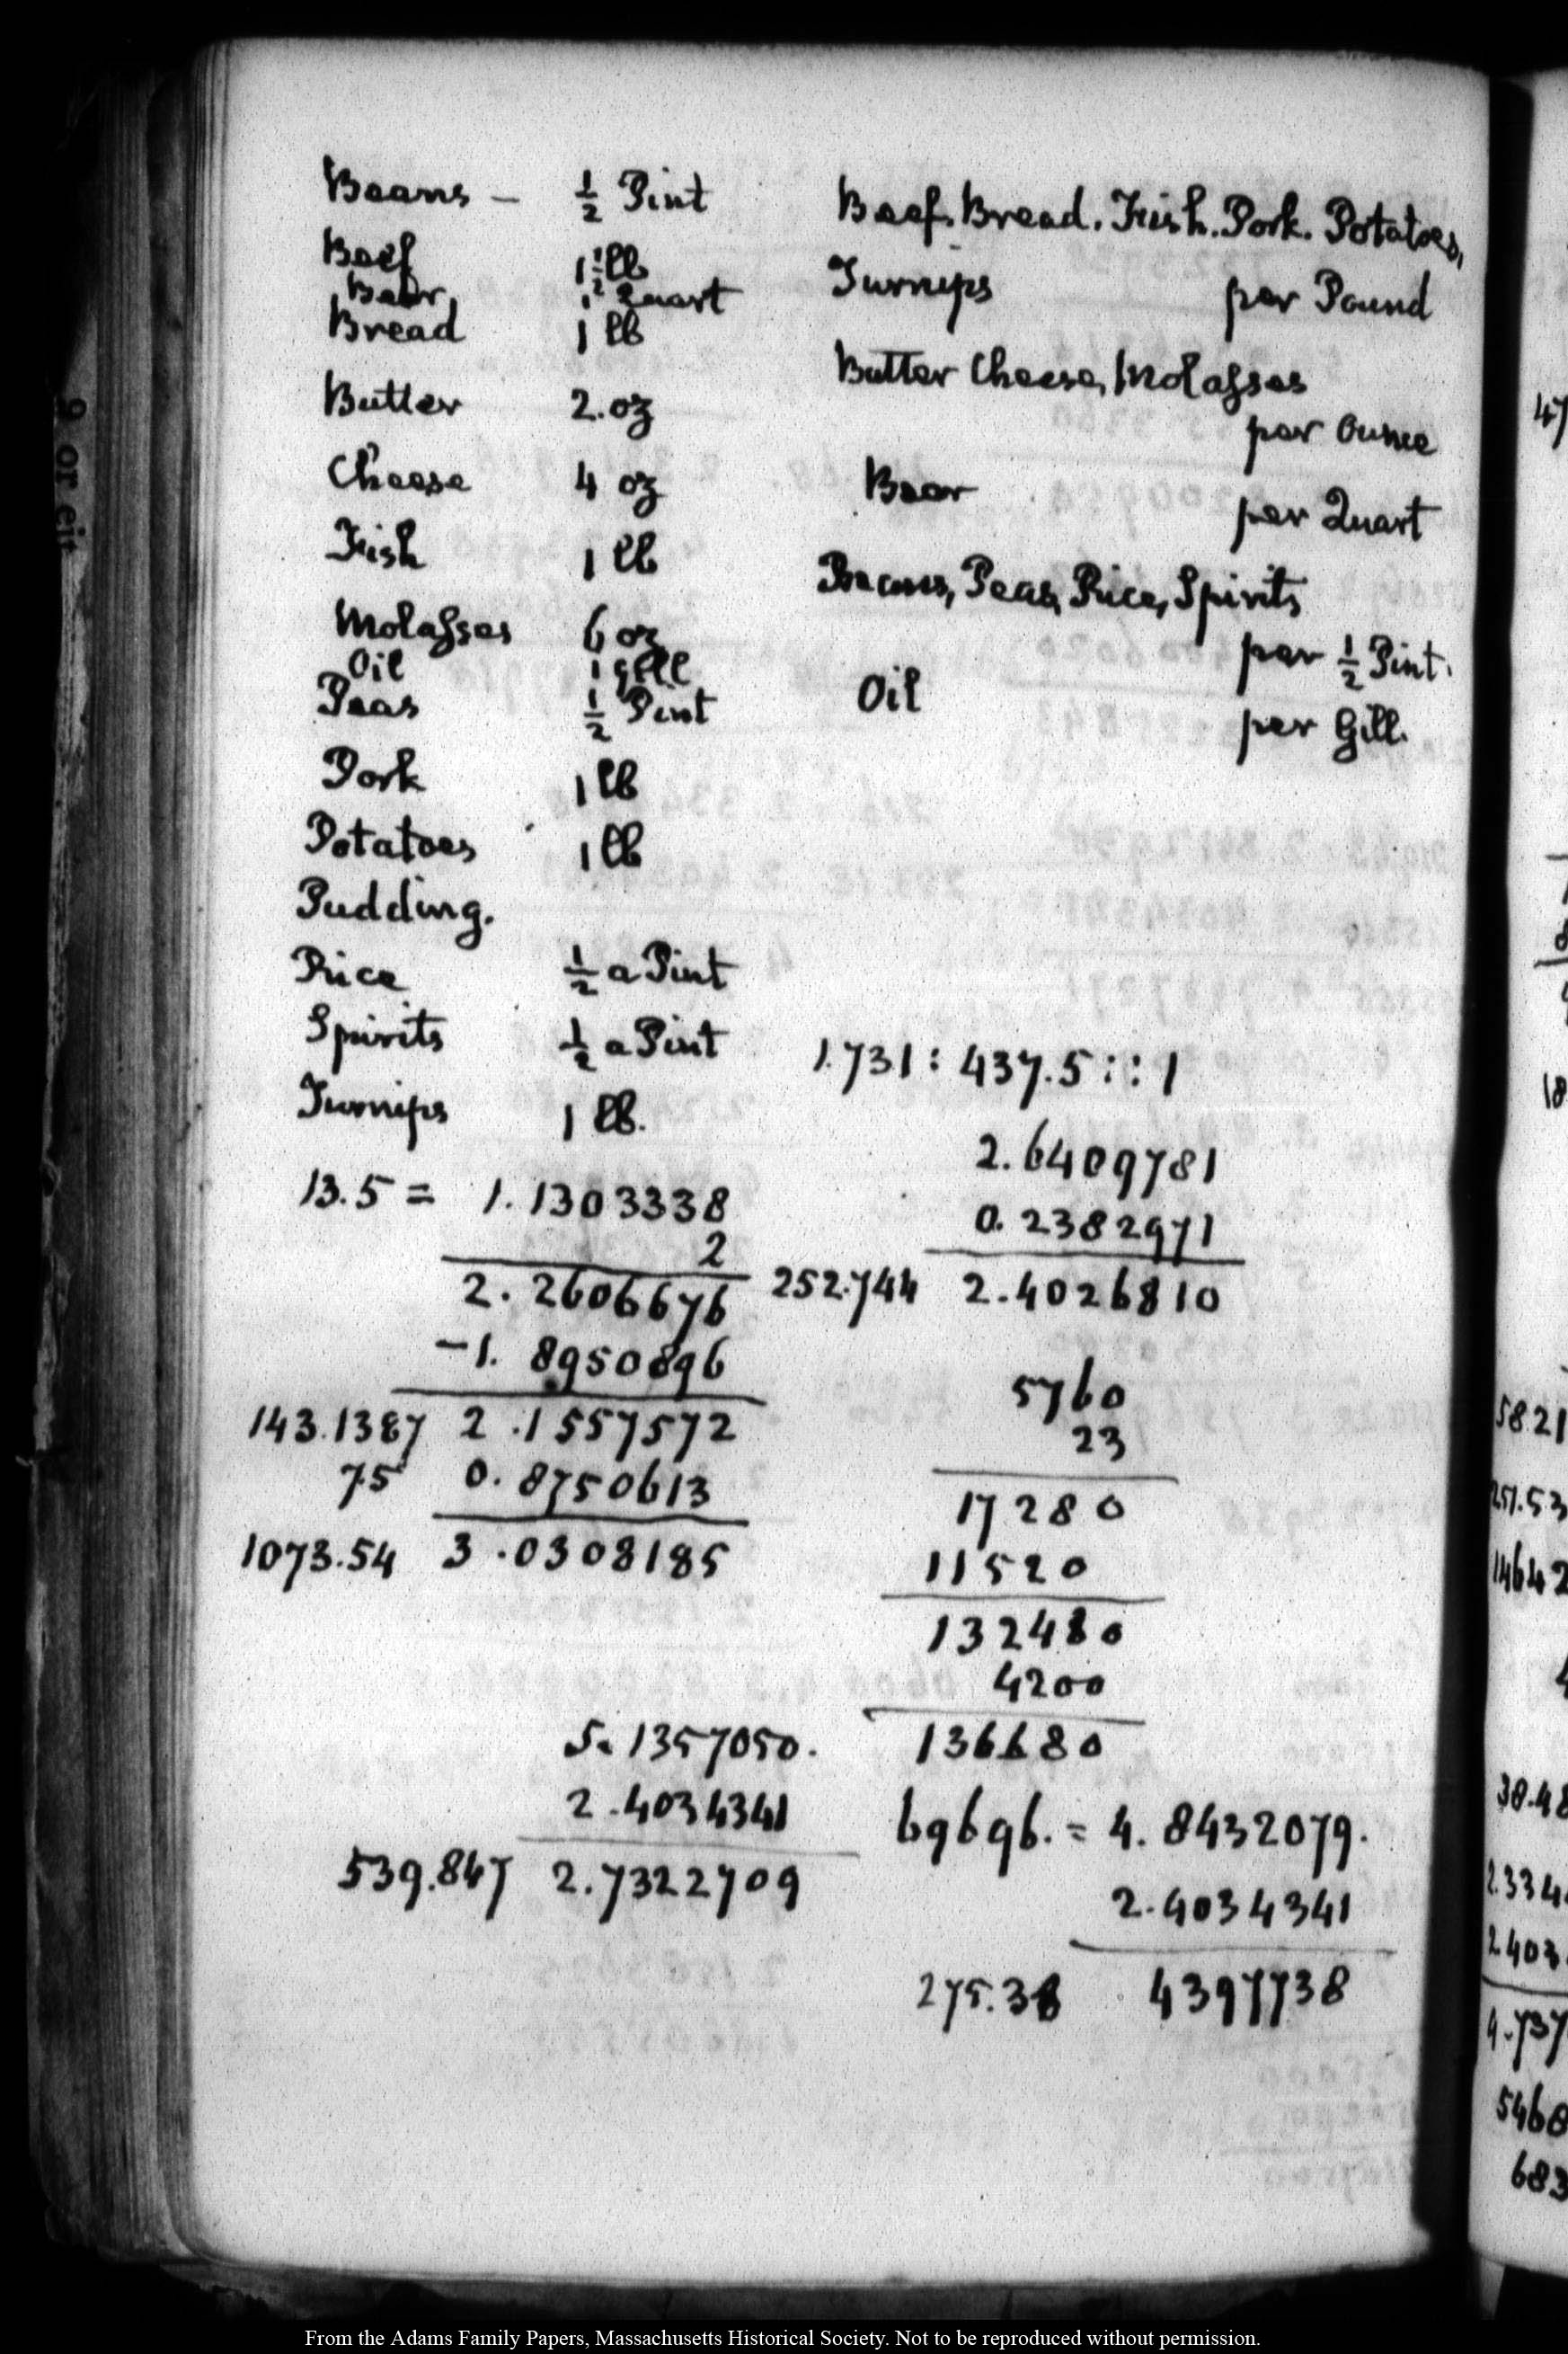 Beans – ½ Pint
Beef 1½ lb
Beer, 1 Quart
Bread 1 lb
Butter 2.oz
Cheese 4 oz
Fish 1 lb
Molasses 6 oz
Oil 1 gill
Peas ½ Pint
Pork 1 lb
Potatoes 1 lb
Pudding.
Rice ½ a Pint
Spirits ½ a Pint
Turnips 1 lb.
Beef. Bread. Fish. Pork. Potatoes,
Turnips per Pound
Butter Cheese, Molasses
per Ounce
Beer per Quart
Beans, Peas, Rice, Spirits
per ½ Pint.
Oil per Gill.
13.5 = 1.1303338
2
2.2606676
–1.8950896
143.1387 2.1557572
7.5 0.8750613
1073.54 3.0308185
1.731 : 437.5 :: 1
2.6409781
0.2382971
252.744 2.4026810
5760
23
17280
11520
132480
4200
136680
5.1357050.
2.4034341
539.847 2.7322709
69696. = 4.8432079.
2.4034341
275.38 4397738
47
18
58.21
251.53
14642
38.48
2.334
2.403
4.737
5468
683
9 or eit
From the Adams Family Papers, Massachusetts Historical Society. Not to be reproduced without permission.